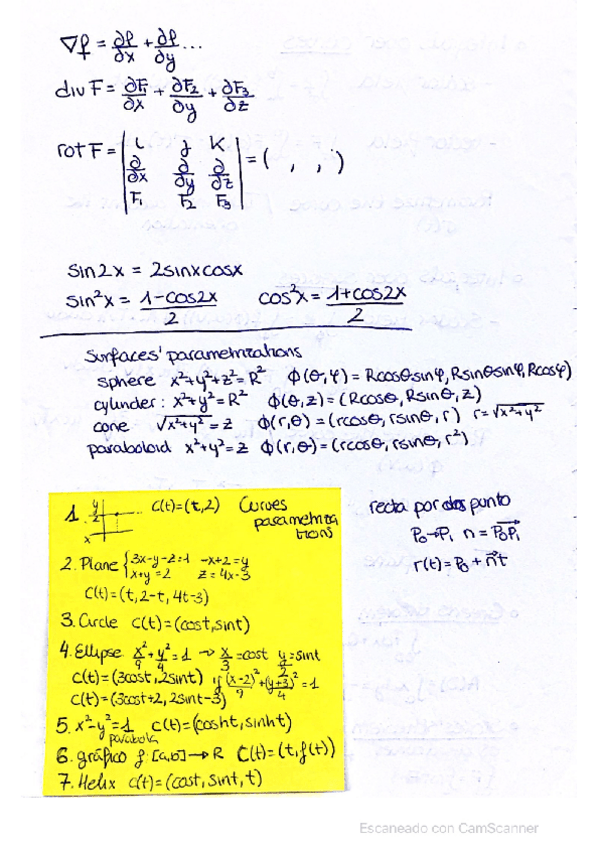 ∇f = ∂f/∂x + ∂f/∂y ...
div F = ∂F₁/∂x + ∂F₂/∂y + ∂F₃/∂z
rot F = | i j K ; ∂/∂x ∂/∂y ∂/∂z ; F₁ F₂ F₃ | = ( , , )
sin2x = 2sinxcosx
sin²x = (1-cos2x)/2 cos²x = (1+cos2x)/2
Surfaces' parametrizations
sphere x²+y²+z²=R² ϕ(θ,φ) = Rcosθsinφ, Rsinθsinφ, Rcosφ)
cylinder: x²+y²=R² ϕ(θ,z) = (Rcosθ, Rsinθ, z)
cone √(x²+y²) = z ϕ(r,θ) = (rcosθ, rsinθ, r) r=√(x²+y²)
paraboloid x²+y²=z ϕ(r,θ) = (rcosθ, rsinθ, r²)
1. y 2 x C(t)=(t,2) Curves parametrizations
2. Plane {3x-y-z=1 -x+2=y
x+y=2 z=4x-3
C(t)=(t,2-t,4t-3)
3. Circle c(t)=(cost,sint)
4. Ellipse x²/9 + y²/4 = 1 → x/3 = cost y/2 = sint
c(t)=(3cost,2sint) if (x-2)²/9 + (y+3)²/4 = 1
c(t)=(3cost+2, 2sint-3)
5. x²-y²=1 c(t)=(cosht, sinht)
parabola
6. gráfico f: [a,b]→R C(t)=(t,f(t))
7. Helix c(t)=(cost, sint, t)
recta por dos punto
P₀→P₁ n = P₀P₁
r(t)=P₀+n⃗t
Escaneado con CamScanner